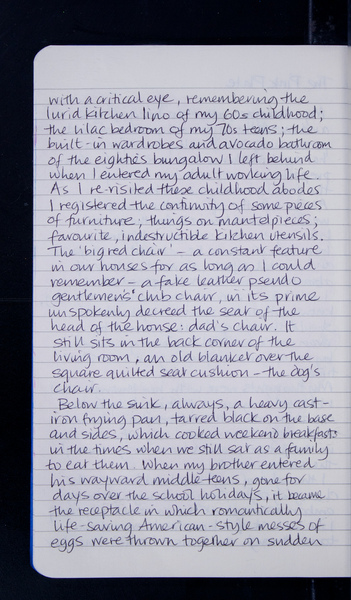 with a critical eye, remembering the
lurid kitchen lino of my 60s childhood;
the lilac bedroom of my 70s teens; the
built-in wardrobes and avocado bathroom
of the eighties bungalow I left behind
when I entered my adult working life.
As I re-visited these childhood abodes
I registered the continuity of some pieces
of furniture; things on mantelpieces;
favourite, indestructible kitchen utensils.
The 'big red chair' – a constant feature
in our houses for as long as I could
remember – a fake leather pseudo
gentlemens' club chair, in its prime
unspokenly decreed the seat of the
head of the house: dad's chair. It
still sits in the back corner of the
living room, an old blanket over the
square quilted seat cushion – the dog's
chair.
Below the sink, always, a heavy cast-
iron frying pan, tarred black on the base
and sides, which cooked weekend breakfasts
in the times when we still sat as a family
to eat them. When my brother entered
his wayward middle-teens, gone for
days over the school holidays, it became
the receptacle in which romantically
life-saving American-style messes of
eggs were thrown together on sudden